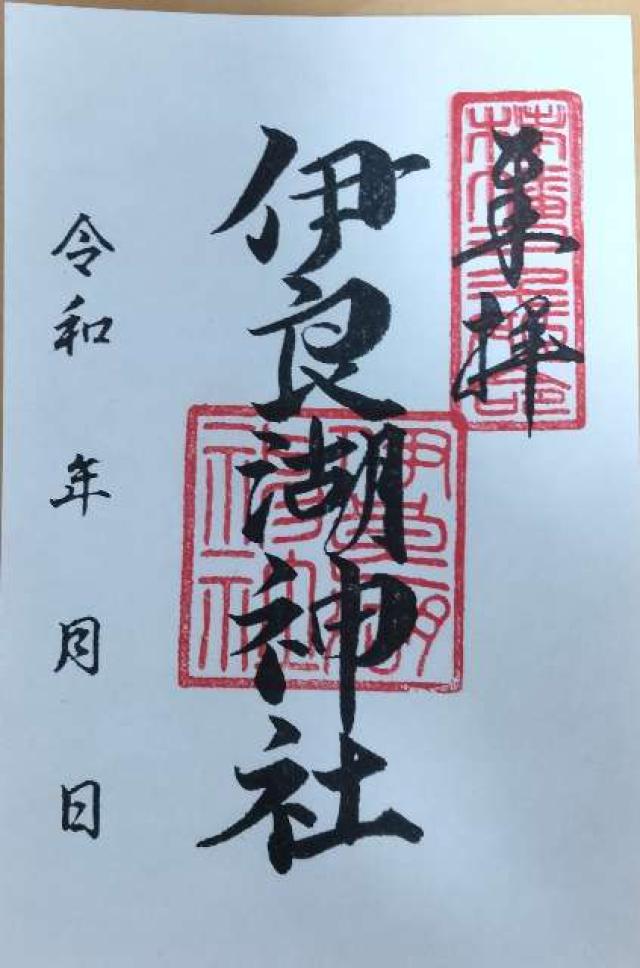 奉拝
伊良湖神社
令和 年 月 日
伊良湖神社